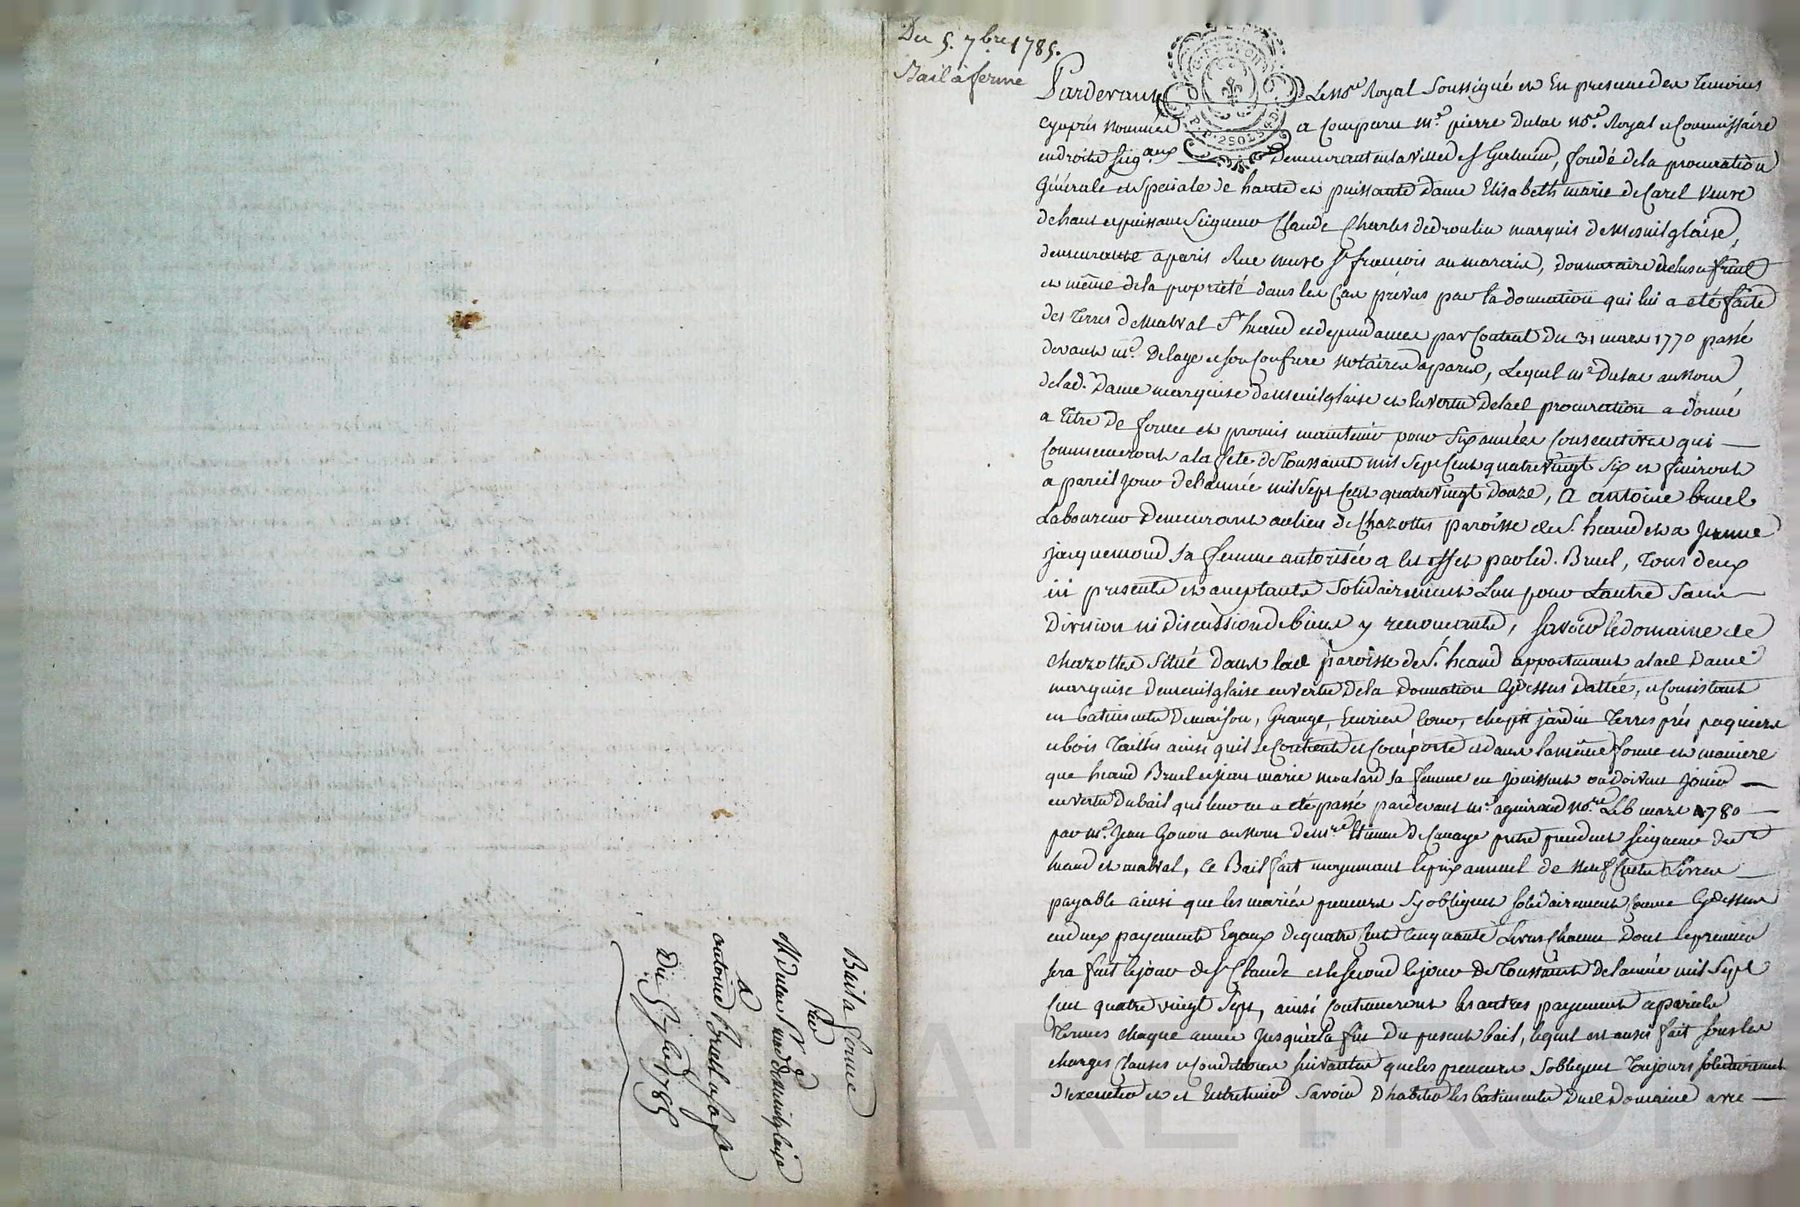 Du 5. 7bre 1785.
Bail à ferme
Pardevant Le no.re Royal soussigné et En presence des Temoins
cyaprés nommés a comparu m.e pierre Dulac no.re Royal et Commissaire
en droits seig.aux demeurant en la ville de st Germain, fondé de la procuration
Générale et speciale de haute et puissante dame Elisabeth marie de Carel veuve
de haut et puissant seigneur Claude Charles dedroulin marquis de Mesnilglaise,
demeurante a paris Rue neuve st francois au marais, donnataire de lusufruit
et même de la proprieté dans les cas prévus par la donnation qui lui a eté faite
des Terres de malval st heand et dependances par Contrat Du 31 mars 1770 passé
devant m.e Delage et son Confrere notaires a paris, Lequel m.e Dulac au nom
de lad. Dame marquise de mesnilglaise et en vertu de lad procuration a donné
a titre de ferme et promis maintenir pour six années Consecutives qui
Commenceront a la fete de Toussaint mil sept cent quatre vingt six et finiront
a pareil jour de l'année mil sept cent quatre vingt douze, a antoine bruel
Laboureur demeurant au lieu de Chazottes paroisse de s.t heand et a Jeanne
jacquemond sa femme autorisée a les effet par led. Bruel, tous deux
ici presents et acceptants solidairement L'un pour L'autre sans
Division ni discussion de biens y renoncants, savoir le domaine de
chazottes situé dans lad paroisse de s.t heand appartenant a lad Dame
marquise de mesnilglaise en vertu de la donnation cy dessus dattée, et Consistant
en batiments de maison, Grange, Ecuries cour, jardin terres prés paquiers
et bois Taillis ainsi quil se Contient et Comporte et dans la même forme et maniere
que heand Bruel et jean marie moulard sa femme en jouissent ou doivent jouir
en vertu du bail qui leur en a eté passé pardevant m.e aguiraud no.re Le 6 mars 1780
par m.e Jean Gonon au nom de m.re Etienne de Canaye pretre prendent seigneur de st
heand et malval, ce Bail fait moyennant le prix annuel de neuf Cents Livres
payable ainsi que les mariés preneurs s'y obligent solidairement comme cy dessus
en deux payements Egaux de quatre cent cinquante Livres Chacun dont le premier
sera fait le jour de st Claude et le second le jour de Toussaint de l'année mil sept
cent quatre vingt sept, ainsi continueront les autres payement a pareils
Termes chaque année jusqu'a la fin du present bail, lequel est aussi fait sous les
charges Clauses et Conditions suivantes que les preneurs s'obligent Toujours solidairement
d'executer et Entretenir savoir d'habiter les batiments dud Domaine avec
Bail a ferme
Par
M.e dulac p.r mad.e de Menilglaise
a
antoine Bruel et sa fe
Du 5 7bre 1785